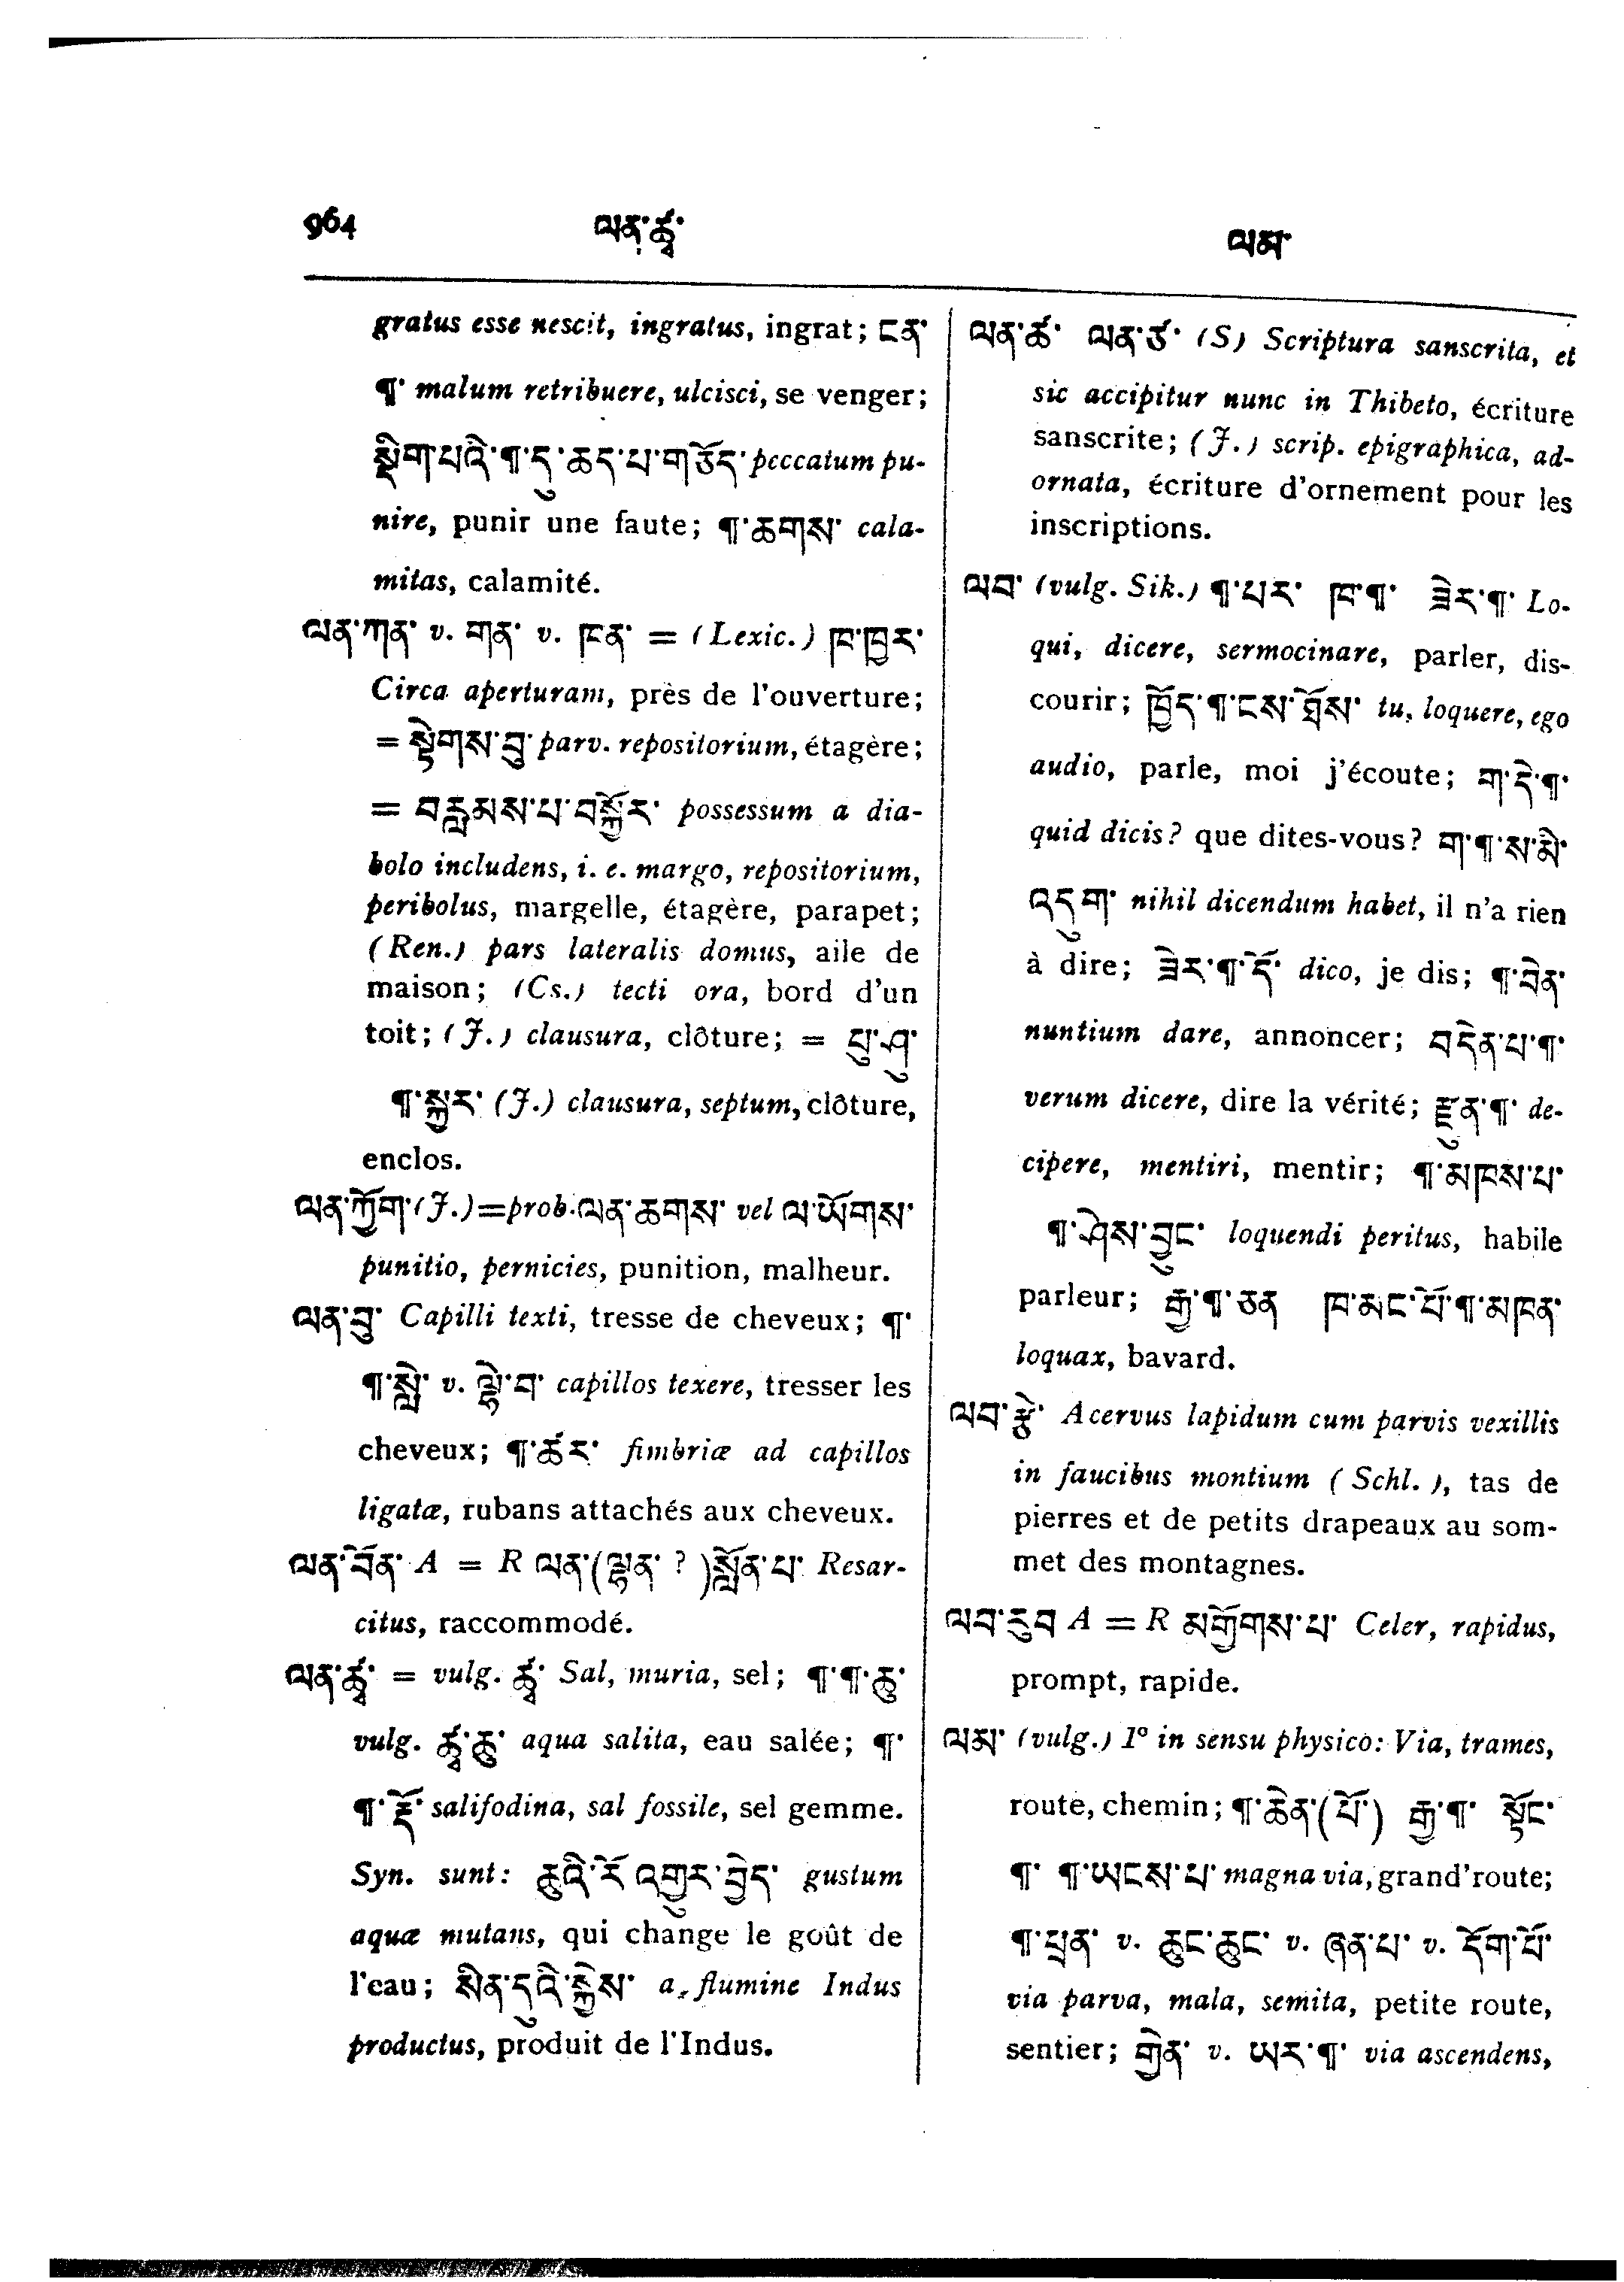 964 ལན་ཚྭ་ ལམ་
gratus esse nescit, ingratus, ingrat; ངན་
¶་ malum retribuere, ulcisci, se venger;
སྡིག་པའི་¶་དུ་ཆད་པ་གཅོད་ peccatum pu-
nire, punir une faute; ¶་ཆགས་ cala-
mitas, calamité.
ལན་ཀན་ v. གན་ v. ཁན་ = (Lexic.) ཁ་ཁྱར་
Circa aperturam, près de l'ouverture;
= སྟེགས་བུ་ parv. repositorium, étagère;
= བརླམས་པ་བསྐོར་ possessum a dia-
bolo includens, i. e. margo, repositorium,
peribolus, margelle, étagère, parapet;
(Ren.) pars lateralis domus, aile de
maison; (Cs.) tecti ora, bord d'un
toit; (J.) clausura, clôture; = པུ་ཤུ་
¶་སྐྱར་ (J.) clausura, septum, clôture,
enclos.
ལན་ཀྱོག་ (J.) = prob. ལན་ཆགས་ vel ལ་ཡོགས་
punitio, pernicies, punition, malheur.
ལན་བུ་ Capilli texti, tresse de cheveux; ¶་
¶་སླེ་ v. ལྷེ་བ་ capillos texere, tresser les
cheveux; ¶་ཚར་ fimbriæ ad capillos
ligatæ, rubans attachés aux cheveux.
ལན་བོན་ A = R ལན་(ལྷན་ ?)སློན་པ་ Resar-
citus, raccommodé.
ལན་ཚྭ་ = vulg. ཚྭ་ Sal, muria, sel; ¶་¶་ཆུ་
vulg. ཚྭ་ཆུ་ aqua salita, eau salée; ¶་
¶་རྡོ་ salifodina, sal fossile, sel gemme.
Syn. sunt: ཆུའི་རོ་འགྱུར་བྱེད་ gustum
aquæ mutans, qui change le goût de
l'eau; སིན་དུའི་སྐྱེས་ a flumine Indus
productus, produit de l'Indus.
ལན་ཚ་ ལན་ཙ་ (S) Scriptura sanscrita, et
sic accipitur nunc in Thibeto, écriture
sanscrite; (J.) scrip. epigraphica, ad-
ornata, écriture d'ornement pour les
inscriptions.
ལབ་ (vulg. Sik.) ¶་པར་ ཁ་¶་ ཟེར་¶་ Lo-
qui, dicere, sermocinare, parler, dis-
courir; ཁྱོད་¶་ངས་ཐོས་ tu, loquere, ego
audio, parle, moi j'écoute; ག་དེ་¶་
quid dicis? que dites-vous? ག་¶་ས་མི་
འདུག་ nihil dicendum habet, il n'a rien
à dire; ཟེར་¶་དོ་ dico, je dis; ¶་བྲིན་
nuntium dare, annoncer; བདེན་པ་¶་
verum dicere, dire la vérité; རྫུན་¶་ de-
cipere, mentiri, mentir; ¶་མཁས་པ་
¶་ཤེས་བྱུང་ loquendi peritus, habile
parleur; རྒྱ་¶་ཅན ཁ་མང་པོ་¶་མཁན་
loquax, bavard.
ལབ་རྩེ་ Acervus lapidum cum parvis vexillis
in faucibus montium (Schl.), tas de
pierres et de petits drapeaux au som-
met des montagnes.
ལབ་དུབ A = R མགྱོགས་པ་ Celer, rapidus,
prompt, rapide.
ལམ་ (vulg.) 1° in sensu physico: Via, trames,
route, chemin; ¶་ཆེན་(པོ་) རྒྱ་¶་ སྟོང་
¶་ ¶་ཡངས་པ་ magna via, grand'route;
¶་ཕྲན་ v. ཆུང་ཆུང་ v. ཞན་པ་ v. དོག་པོ་
via parva, mala, semita, petite route,
sentier; གྱེན་ v. ཡར་¶་ via ascendens,